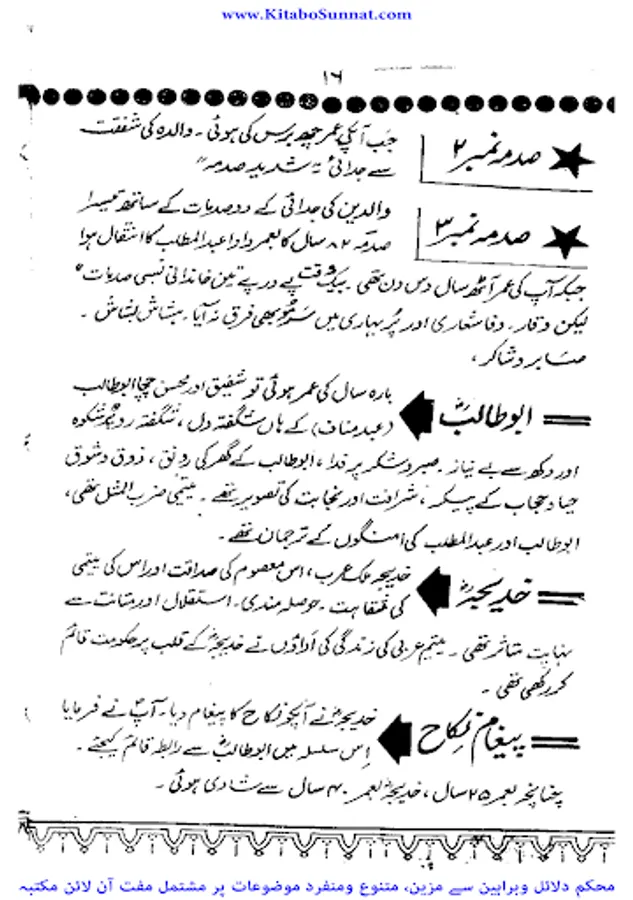 www.KitaboSunnat.com
۱۶
صدمہ نمبر ۲
جب آپکی عمر چھ برس کی ہوئی۔ والدہ کی شفقت
سے جدائی "یہ شدید صدمہ"
صدمہ نمبر ۳
والدین کی جدائی کے دو صدمات کے ساتھ تیسرا
صدمہ ۸۲ سال کا بعمر دادا عبدالمطلب کا انتقال ہوا
جبکہ آپ کی عمر آٹھ سال دس دن تھی۔ بیک وقت پے در پے تین خاندانی نسبی صدمات"
لیکن وقار۔ وفا شعاری اور پُر بہاری میں سرمو بھی فرق نہ آیا۔ ہشاش بشاش۔
صابر و شاکر،
ابوطالبؓ
بارہ سال کی عمر ہوئی تو شفیق اور محسن چچا ابوطالب
(عبد مناف) کے ہاں شگفتہ دل، شگفتہ رو شکوہ
اور دکھ سے بے نیاز۔ صبر و شکر پر فدا، ابوطالب کے گھر کی رونق، ذوق و شوق
حیا و حجاب کے پیکر، شرافت اور نجابت کی تصویر تھے۔ یتیمی ضرب المثل تھی،
ابوطالب اور عبدالمطلب کی اُمنگوں کے ترجمان تھے۔
خدیجہؓ
خدیجہ ملکہ عرب، اس معصوم کی صداقت اور اس کی یتیمی
کی فقاہت۔ حوصلہ مندی۔ استقلال اور متانت سے
نہایت متاثر تھی۔ یتیم عربی کی زندگی کی اداؤں نے خدیجہؓ کے قلب پر حکومت قائم
کر رکھی تھی۔
پیغام نکاح
خدیجہؓ نے آپکو نکاح کا پیغام دیا۔ آپؐ نے فرمایا
اِس سلسلہ میں ابوطالبؓ سے رابطہ قائم کیجئے۔
چنانچہ بعمر ۲۵ سال، خدیجہؓ بعمر ۴۰ سال سے شادی ہوئی۔
محکم دلائل وبراہین سے مزین، متنوع ومنفرد موضوعات پر مشتمل مفت آن لائن مکتبہ